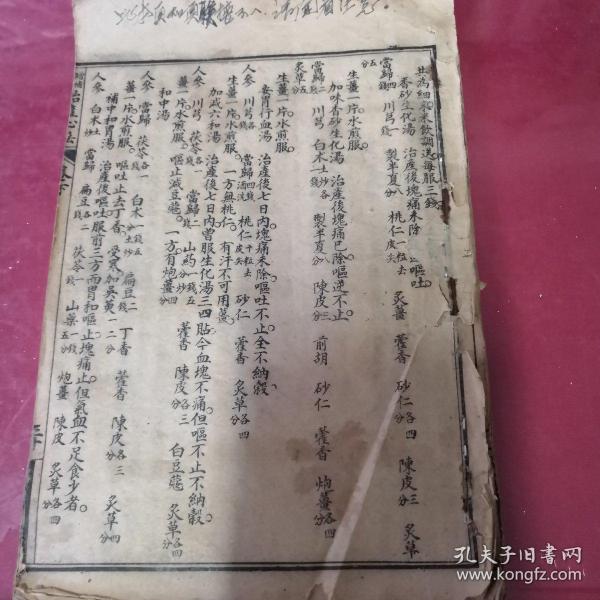 共為細末米飲調送每服三錢
香砂生化湯 治產後塊痛未除 嘔吐
當歸四錢 川芎一錢 製半夏八分 桃仁一粒去皮尖 炙薑 藿香 砂仁各四分 陳皮三分 炙草五分
生薑一片。水煎服。
加味香砂生化湯 治產後塊痛已除嘔逆不止
當歸 川芎一錢 白朮土炒 製半夏八分 陳皮三分 前胡 砂仁 藿香 炮薑各四分
炙草五分
生薑一片。水煎服。
安胃行血湯 治產後七日內塊痛未除嘔吐不止全不納穀。
人參 川芎各一錢 當歸四錢 桃仁十粒去皮尖 砂仁 藿香 炙草各四分
生薑一片。水煎服。一方無桃仁。有汗不可用薑。
加減六和湯 治產後七日內曾服生化湯三四貼今血塊不痛但嘔不止不納穀。
人參 川芎 茯苓各一錢 當歸二錢 山藥一錢五分 藿香 陳皮各三分 白豆蔻 炙草各四分
薑一片。水煎服。嘔止減豆蔻。一方有炮薑四分
和中湯
人參 當歸 茯苓各一錢 白朮一錢五分土炒 扁豆二錢 丁香 藿香 陳皮各三分 炙草四分
薑一片。水煎服。嘔吐止去丁香。受寒加吳萸一二分
補中和胃湯 治產後嘔吐服前三方而胃和嘔止塊痛止但氣血不足食少者。
人參 白朮土炒 當歸 扁豆二錢 茯苓一錢 山藥一錢五分 炮薑 陳皮 炙草各四分
增補治產心法
孔夫子旧書网
www.kongfz.com